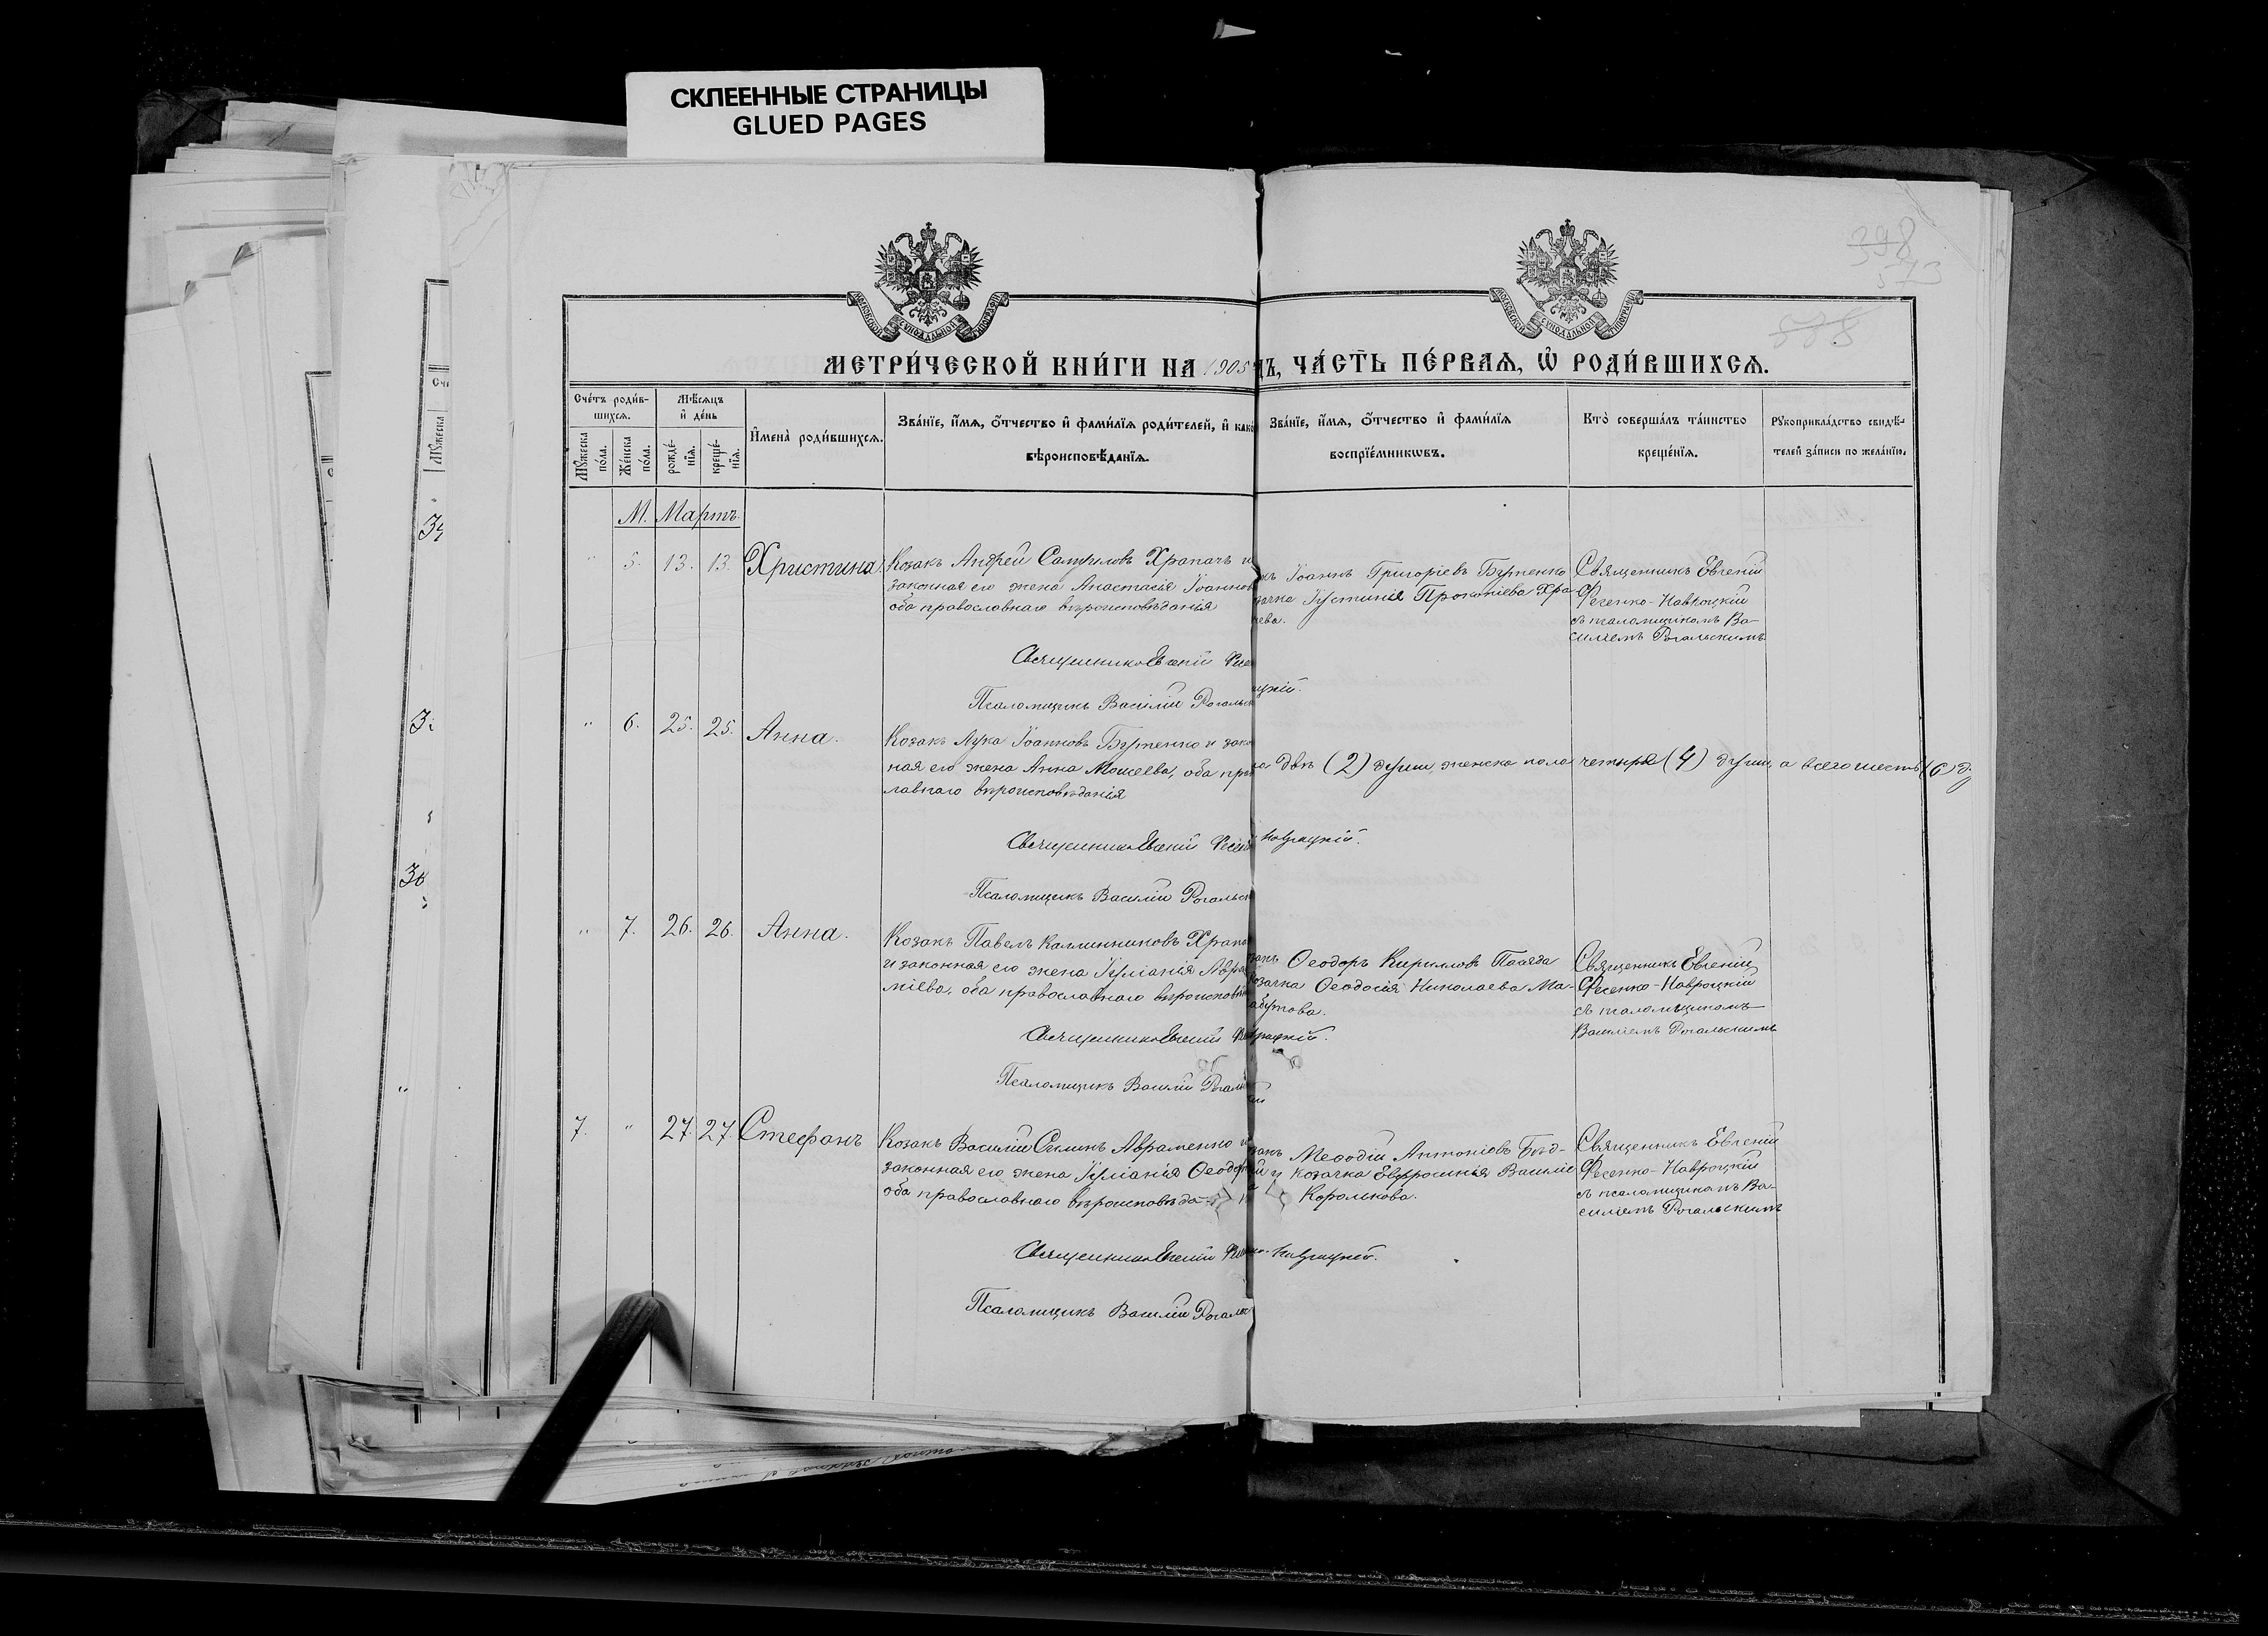 СКЛЕЕННЫЕ СТРАНИЦЫ
GLUED PAGES
398
573
588
МОСКОВСКОЙ СѴНОДАЛЬНОЙ ТИПОГРАФІИ
МОСКОВСКОЙ СѴНОДАЛЬНОЙ ТИПОГРАФІИ
МЕТРИ́ЧЕСКОЙ КНИ́ГИ НА 1905
ДЪ, ЧА́СТЬ ПЕ́РВАЯ, Ѡ РОДИ́ВШИХСЯ.
Сче́тъ роди́вшихся.
Мꙋ́жеска по́ла.
Же́нска по́ла.
Мѣ́сяцъ и҆ де́нь
рожде́нїя.
креще́нїя.
И҆мена̀ роди́вшихся.
Зва́нїе, и҆́мя, ѻ҆́тчество и҆ фами́лїя роди́телей, и҆ како
вѣроисповѣ́данїя.
Зва́нїе, и҆́мя, ѻ҆́тчество и҆ фами́лїя
воспрїе́мникѡвъ.
Кто̀ соверша́лъ та́инство
креще́нїя.
Рꙋкоприкла́дство свидѣ́-
телей за́писи по жела́нїю.
М. Мартъ.
" 5. 13. 13. Христина.
Козакъ Андрей Самуиловъ Храпачъ и
законная его жена Анастасія Іоаннов
оба православнаго вѣроисповѣданія
Іоаннъ Григоріевъ Бутенко
Іустинія Прокопіева Хра-
чева.
Священникъ Евгеній
Фесенко-Навроцкій
съ псаломщикомъ Ва-
силіемъ Рогальскимъ
Священникъ Евгеній Фесен
цкій.
Псаломщикъ Василій Рогальск
" 6. 25. 25. Анна.
Козакъ Лука Іоанновъ Бутенко и зако
ная его жена Анна Моисеева, оба прав
лавнаго вѣроисповѣданія
ла двѣ (2) души, женска пола четыре (4) души, а всего шесть (6) д
Священникъ Евгеній Фесен
Навроцкій.
Псаломщикъ Василій Рогальск
" 7. 26. 26. Анна.
Козакъ Павелъ Каллинниковъ Храпа
и законная его жена Іуліанія Авра
міева, оба православнаго вѣроисповѣ
закъ Ѳеодоръ Кирилловъ
козачка Ѳеодосія Николаева Ма-
бутова.
Священникъ Евгеній
Фесенко-Навроцкій
съ псаломщикомъ
Василіемъ Рогальскимъ
Священникъ Евгеній Фе
вроцкій.
Псаломщикъ Василій Рогаль
7. " 27. 27. Стефанъ
Козакъ Василій Авраменко и
законная его жена Іуліанія Ѳеодор
оба православнаго вѣроисповѣда-
закъ Меѳодій Антоніовъ Бѣд-
й и козачка Евфросинія Василіе
Королькова.
Священникъ Евгеній
Фесенко-Навроцкій
съ псаломщикомъ Ва-
силіемъ Рогальскимъ
Священникъ Евгеній Фесен
Навроцкій.
Псаломщикъ Василій Рогальс